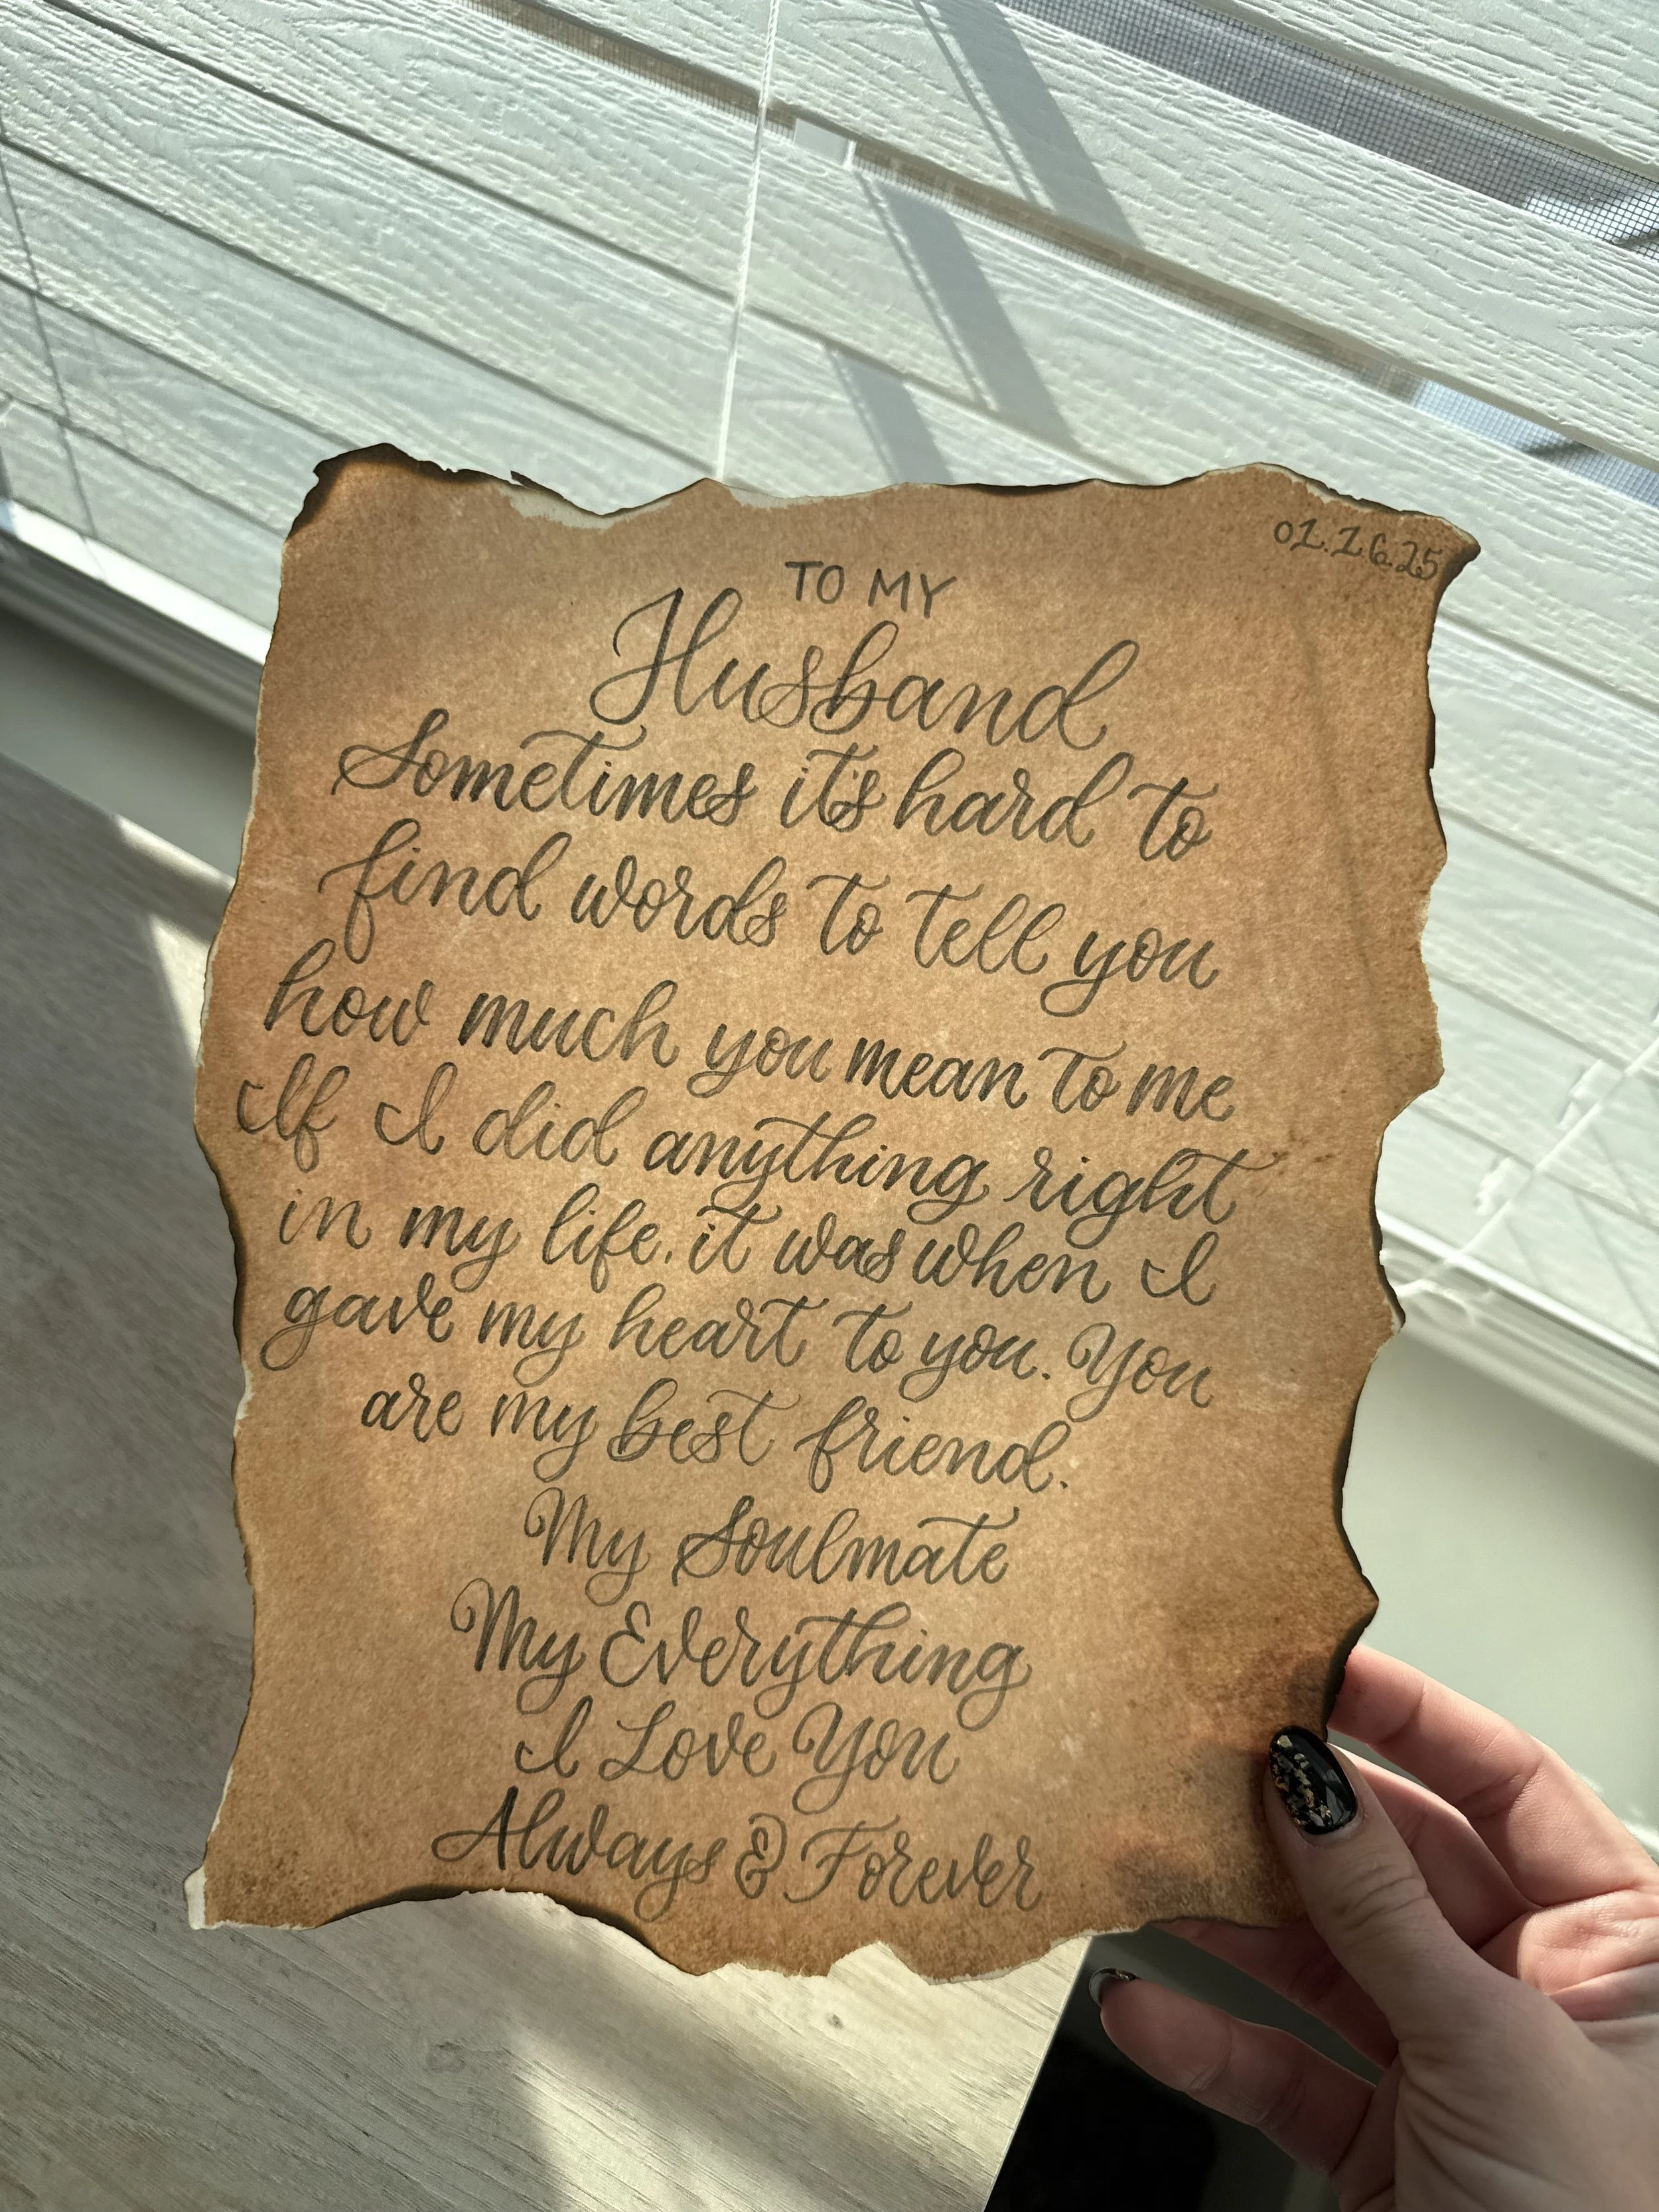 01.16.25
TO MY
Husband
Sometimes it's hard to
find words to tell you
how much you mean to me
If I did anything right
in my life, it was when I
gave my heart to you. You
are my best friend.
My Soulmate
My Everything
I Love You
Always & Forever